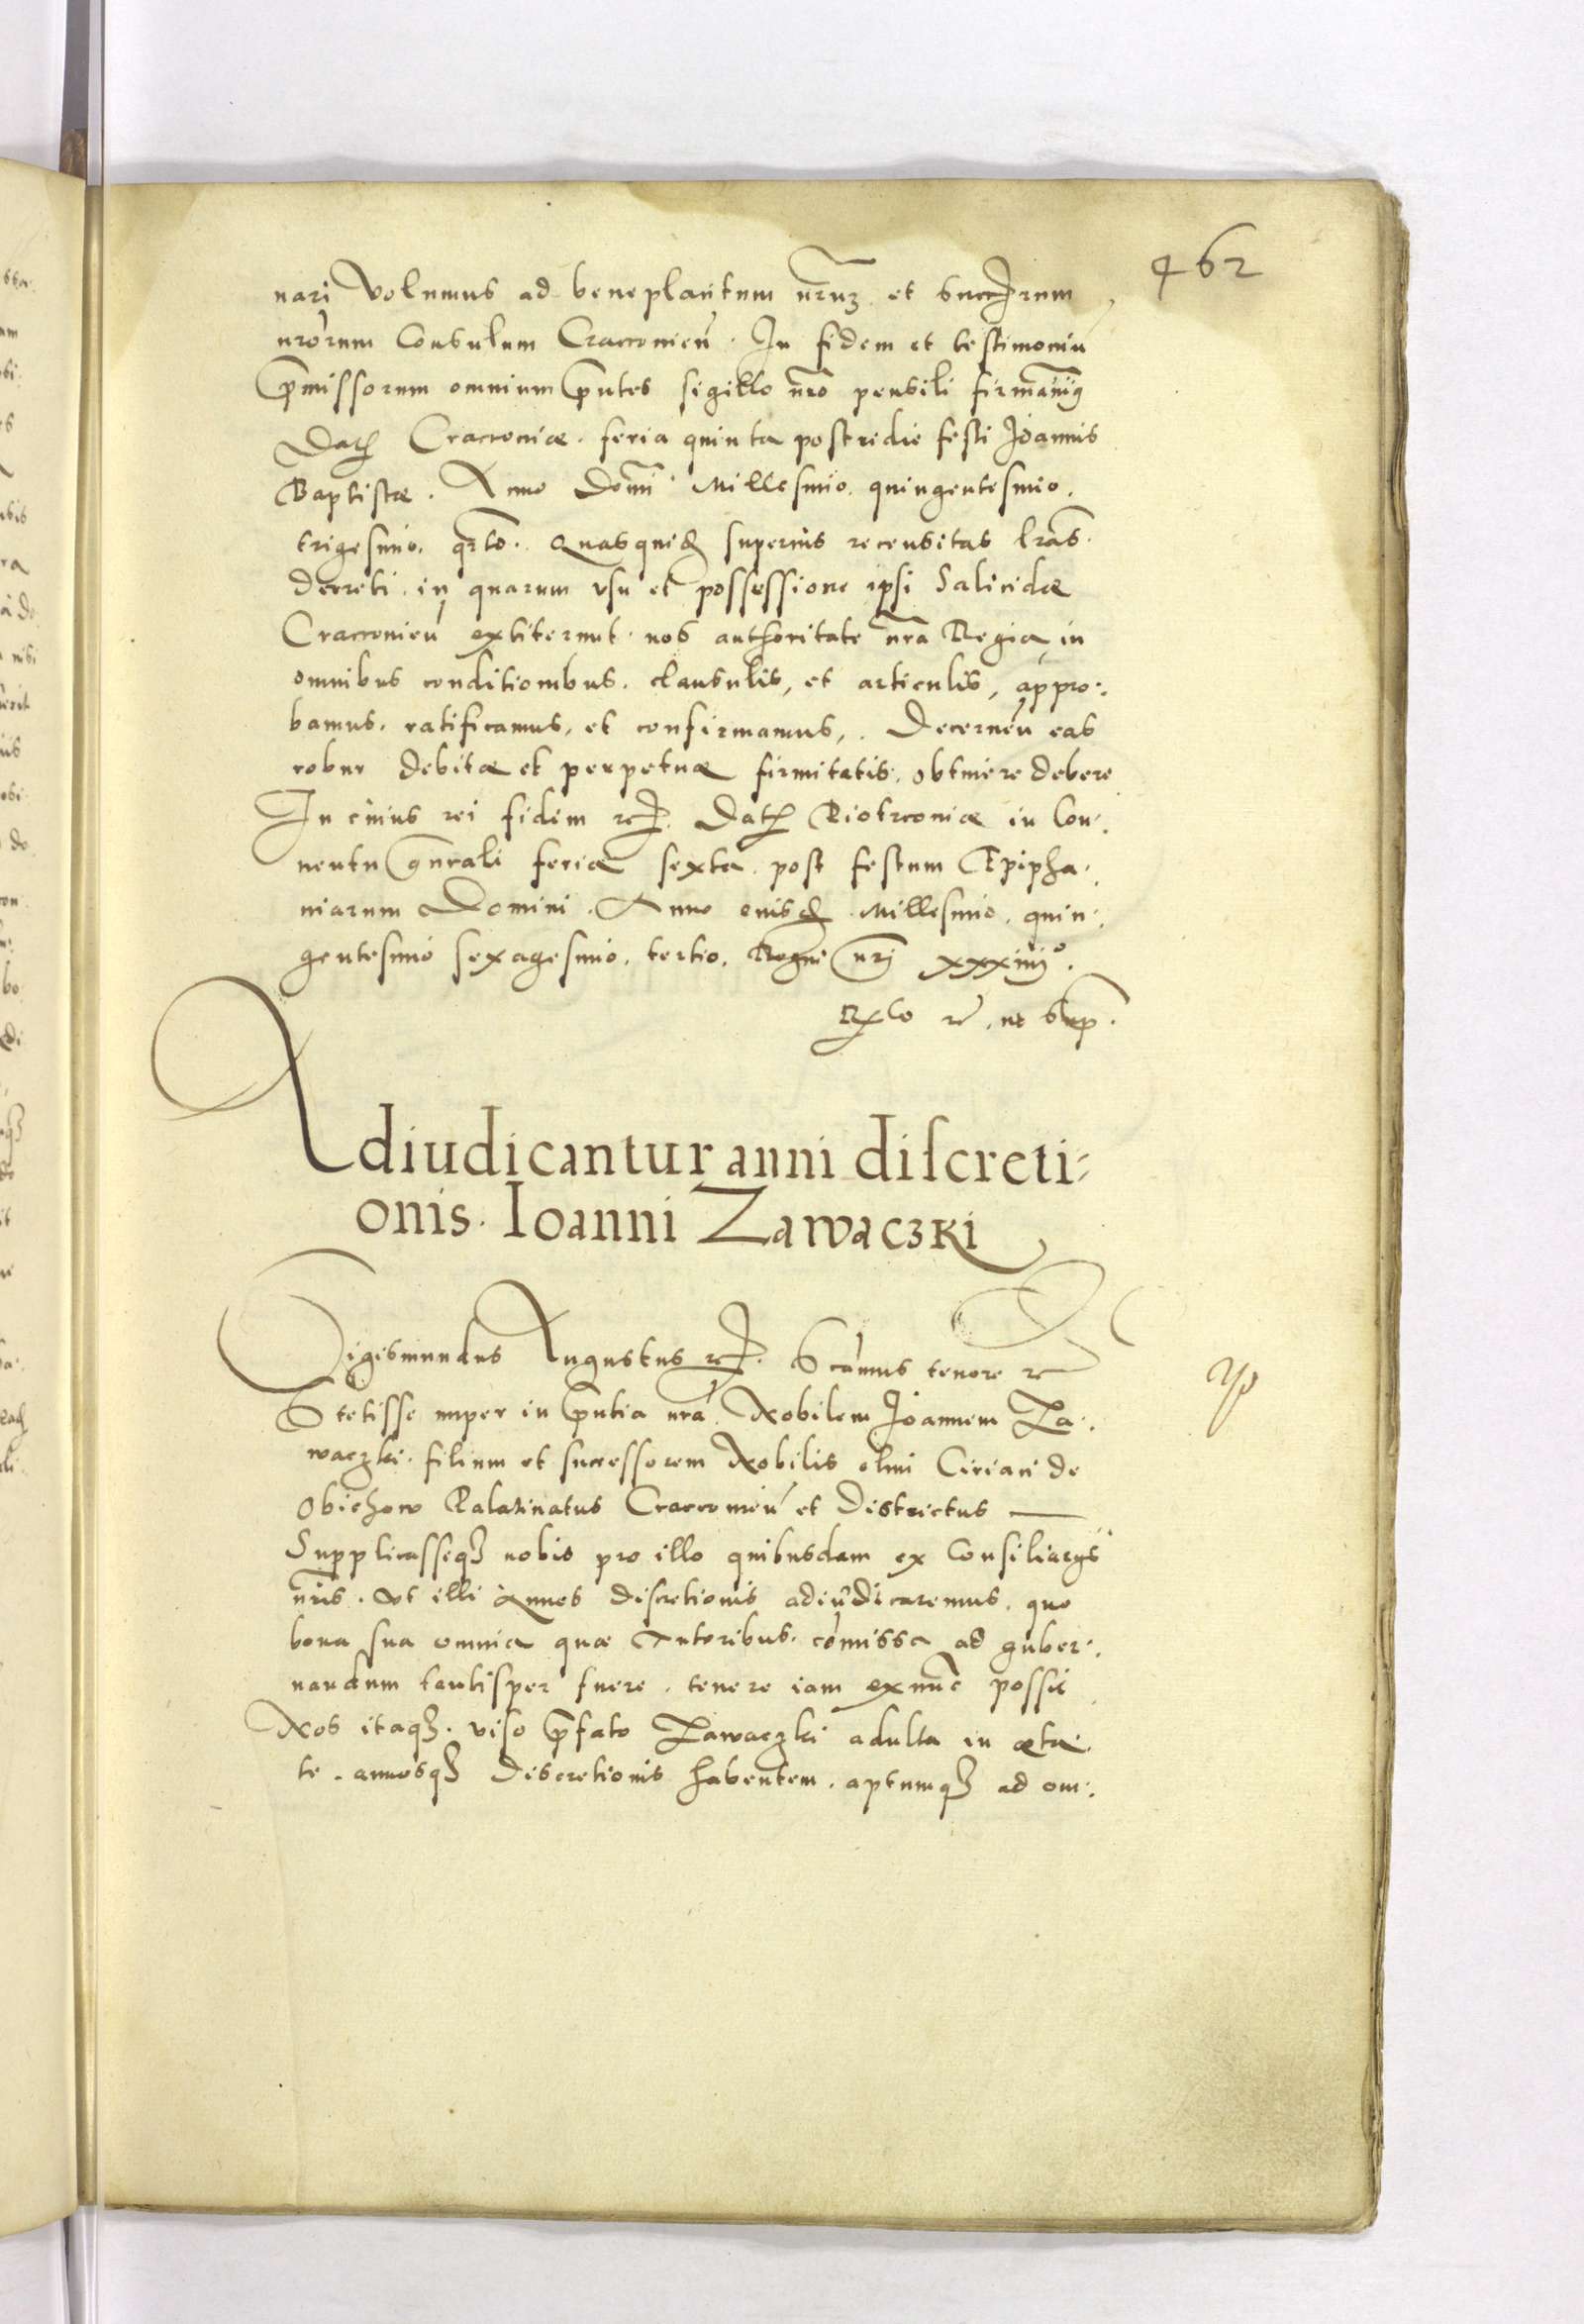 462
nari Volumus ad beneplacitum nr̃uʒ et Succr̃um
nr̃orum Consulum Cracouień. In fidem et testimoniũ
p̃missorum omnium p̃ntes sigillo nr̃o pensili firmauimꝰ
Datꝫ Cracouiæ. feria quinta postridie festi Joannis
Baptistæ. Anno Domi Millesimo. quingentesimo.
trigesimo. qrto. Quasquidꝫ superius recensitas lr̃as.
decreti. in quarum vsu et possessione ipsi Salicidæ
Cracouień extiterunt. nos authoritate nr̃a Regia, in
omnibus conditionibus. clausulis, et articulis, appro:
bamus. ratificamus, et confirmamus,. Decerneń eas
robur debitæ et perpetuæ firmitatis. obtinere debere
In cuius rei fidem ꝛc̃. Datꝫ Piotrcouiæ in Con:
uentu gñrali feria sexta. post festum Epipha:
niarum Domini. Anno eiusdꝫ. Millesimo. quin:
gentesimo sexagesimo. tertio. Regni nr̃i xxxiiijº.
Rlo ꝛc. ut Sup.
Adiudicantur anni discreti=
onis. Ioanni Zawaczki
Sigismundus Augustus ꝛc̃. Scamus tenore ꝛc
Stetisse nuper in p̃ntia nr̃a. Nobilem Joannem Za:
waczki. filium et successorem Nobilis olim Ciriaci de
Obiechow Palatinatus Cracouień et Districtus —
Supplicasseqꝫ nobis pro illo quibusdam ex Consiliarijs
nr̃is. Vt illi Annos discretionis adiudicaremus. quo
bona sua omnia quæ Tutoribus. com̃issa ad guber:
nandum tantisper fuere. tenere iam exnunc possit
Nos itaqꝫ. viso p̃fato Zawaczki adulta in æta:
te. annosqꝫ Discretionis habentem. aptumqꝫ ad om: